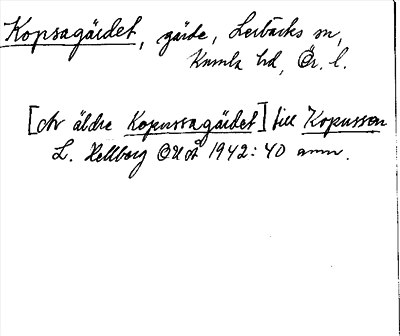 Kopsagärdet, gärde, Lerbäcks sn,
Kumla hd, Ör. l.
[Av äldre Kopussagärdet] till Kopussen
L. Hellberg OUÅ 1942: 40 anm.